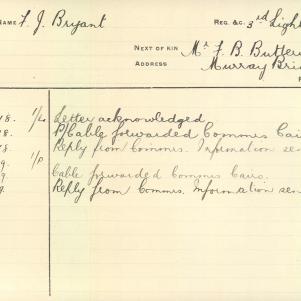 NAME F. J. Bryant REG. &C. 3rd Light
NEXT OF KIN Mr F. B. Butter
ADDRESS Murray Bri
18. 1/Lo Letter acknowledged
18. P/Cable forwarded Commis Cai
18 Reply from Commis. Information sen
9. 1/P
9 Cable forwarded Commis Cairo.
9. Reply from Commis. Information sen